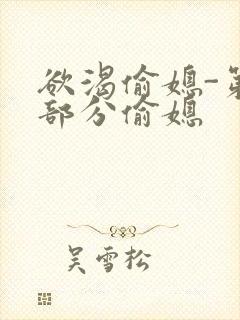 欲渴偷媳-第
部分偷媳
吴雪松